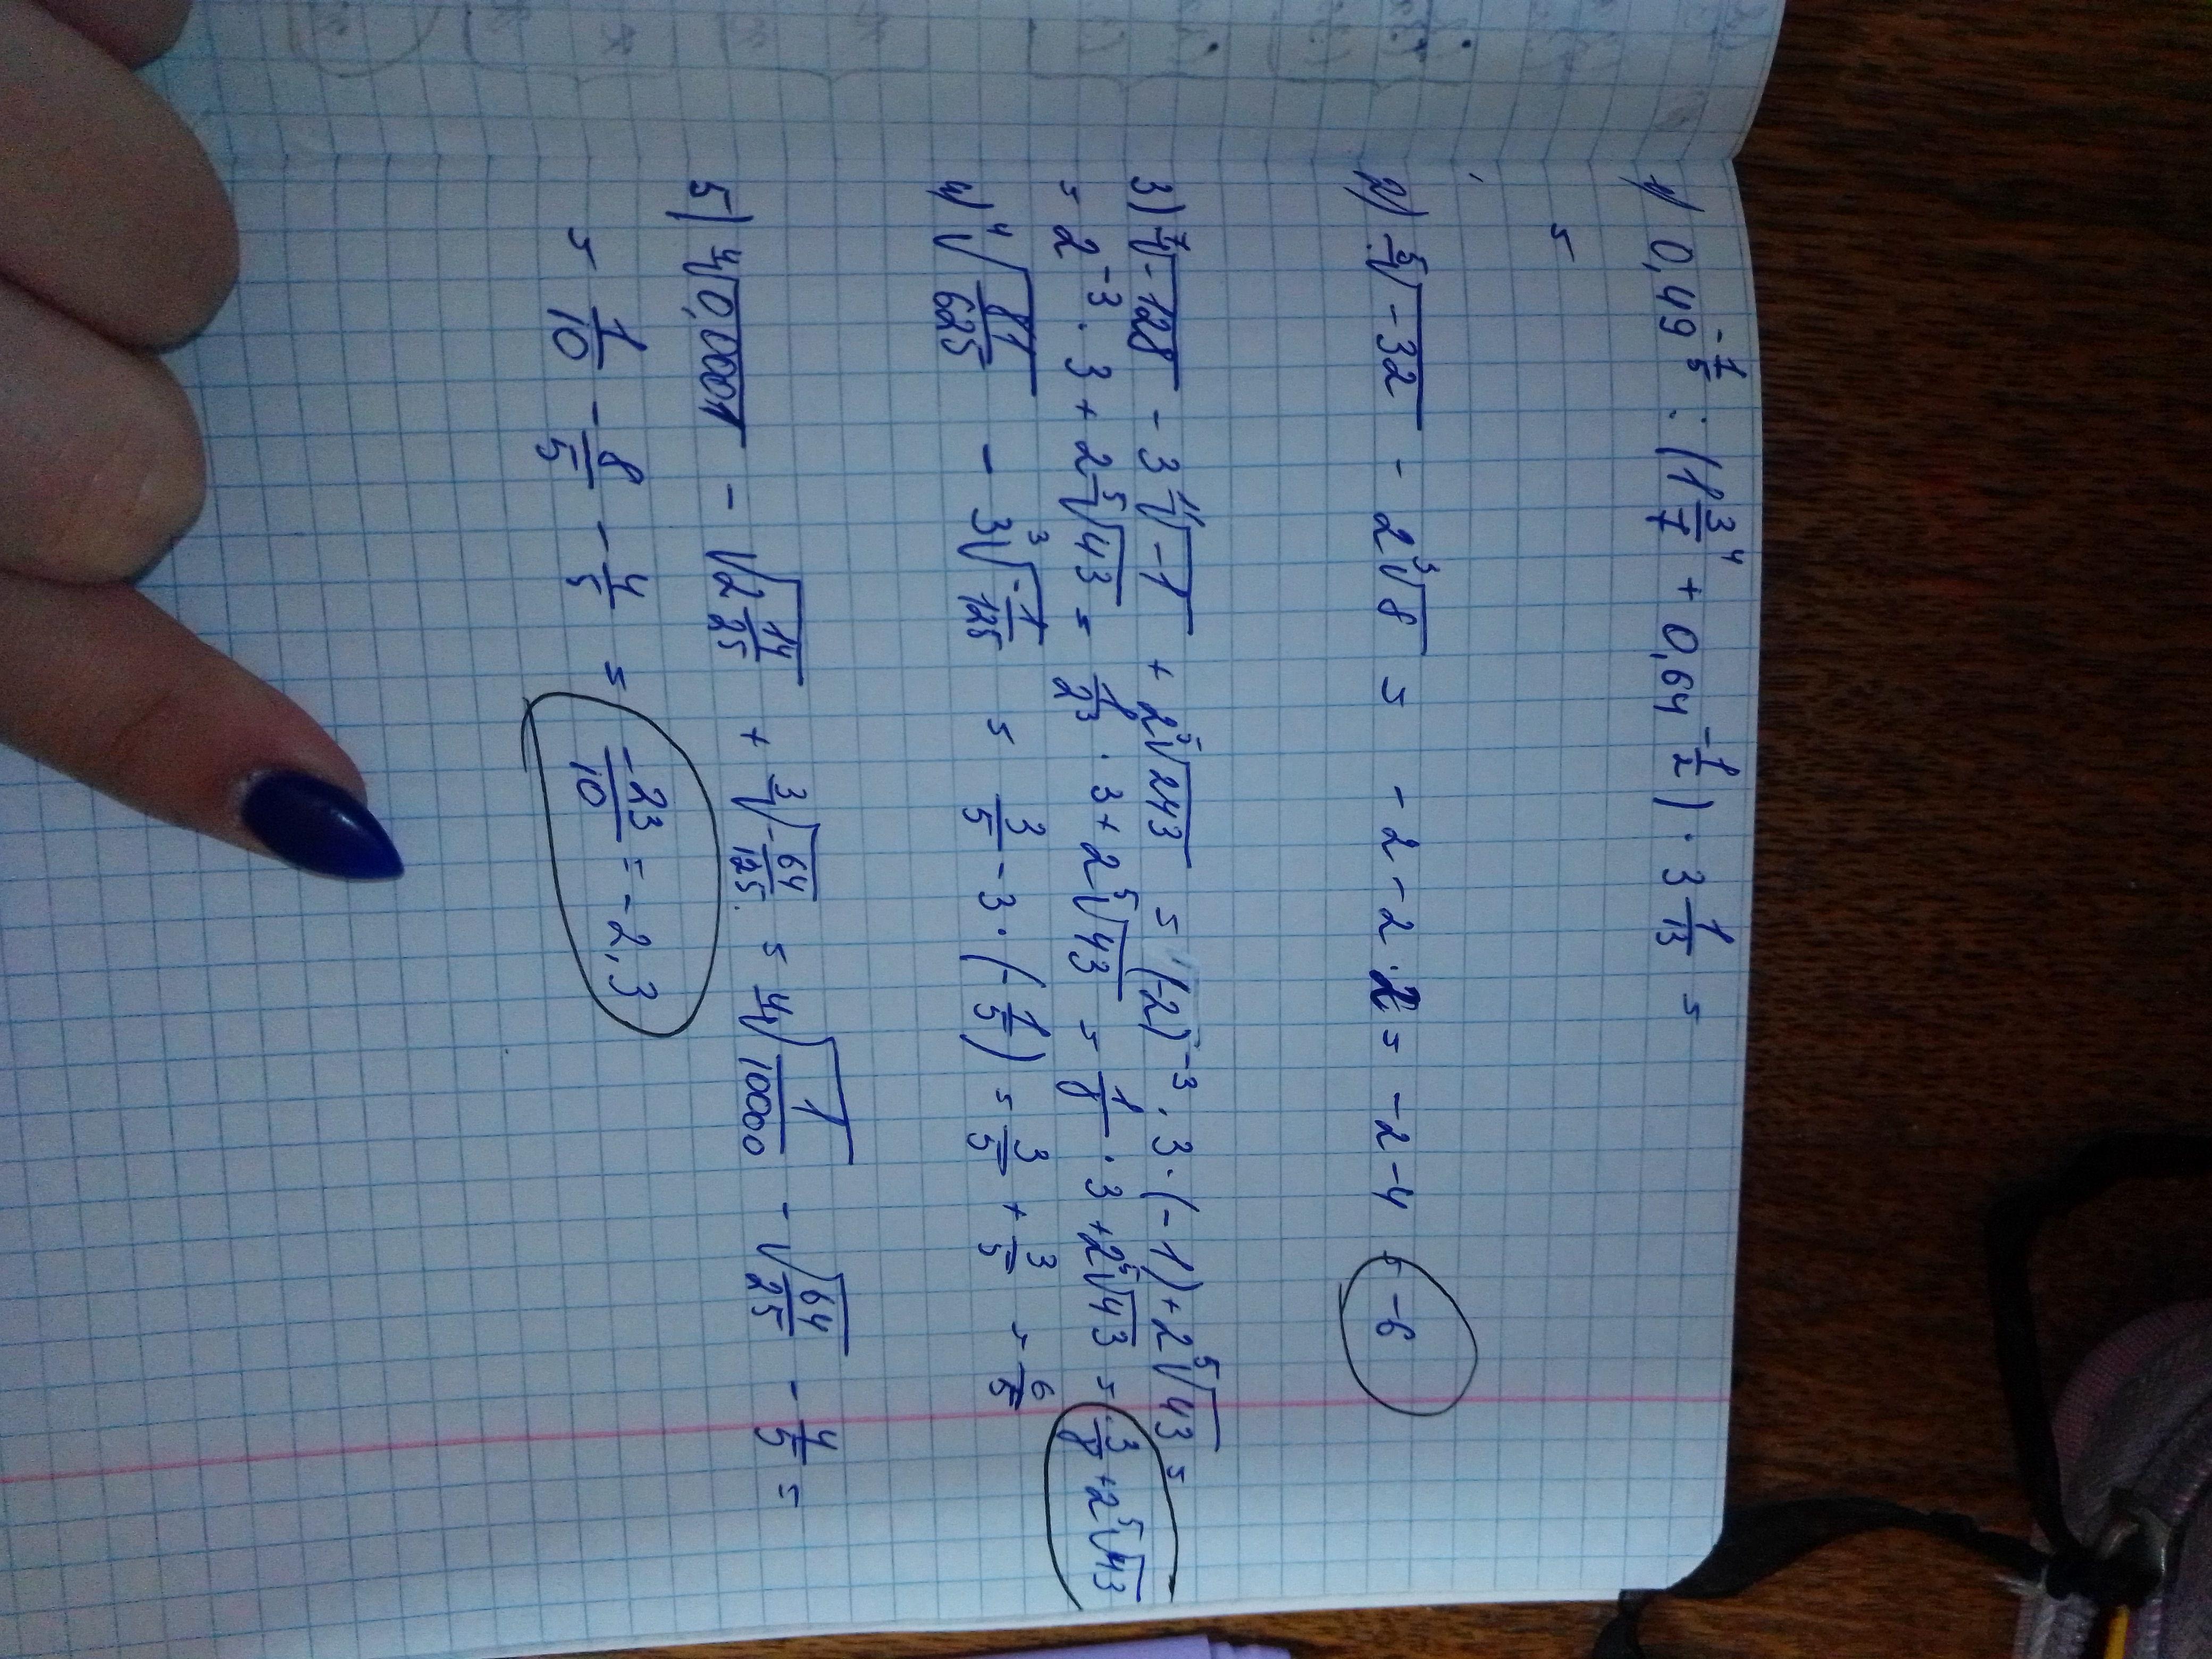 1) 0,49^{-1/5} : (1 3/7^4 + 0,64^{-1/2}) · 3 1/13 =
=
2) ⁵√-32 - 2 ³√8 = -2 - 2·2 = -2 - 4 = -6
3) ⁷√-128 - 3 ¹¹√-1 + 2 ⁵√243 = (-2)^{-3} · 3 · (-1) + 2 ⁵√43 =
= 2^{-3} · 3 + 2 ⁵√43 = 1/2^3 · 3 + 2 ⁵√43 = 1/8 · 3 + 2 ⁵√43 = 3/8 + 2 ⁵√43
4) ⁴√81/625 - 3 ³√-1/125 = 3/5 - 3 · (-1/5) = 3/5 + 3/5 = 6/5
5) ⁴√0,0001 - √2 14/25 + ³√-64/125 = ⁴√1/10000 - √64/25 - 4/5 =
= 1/10 - 8/5 - 4/5 = -23/10 = -2,3